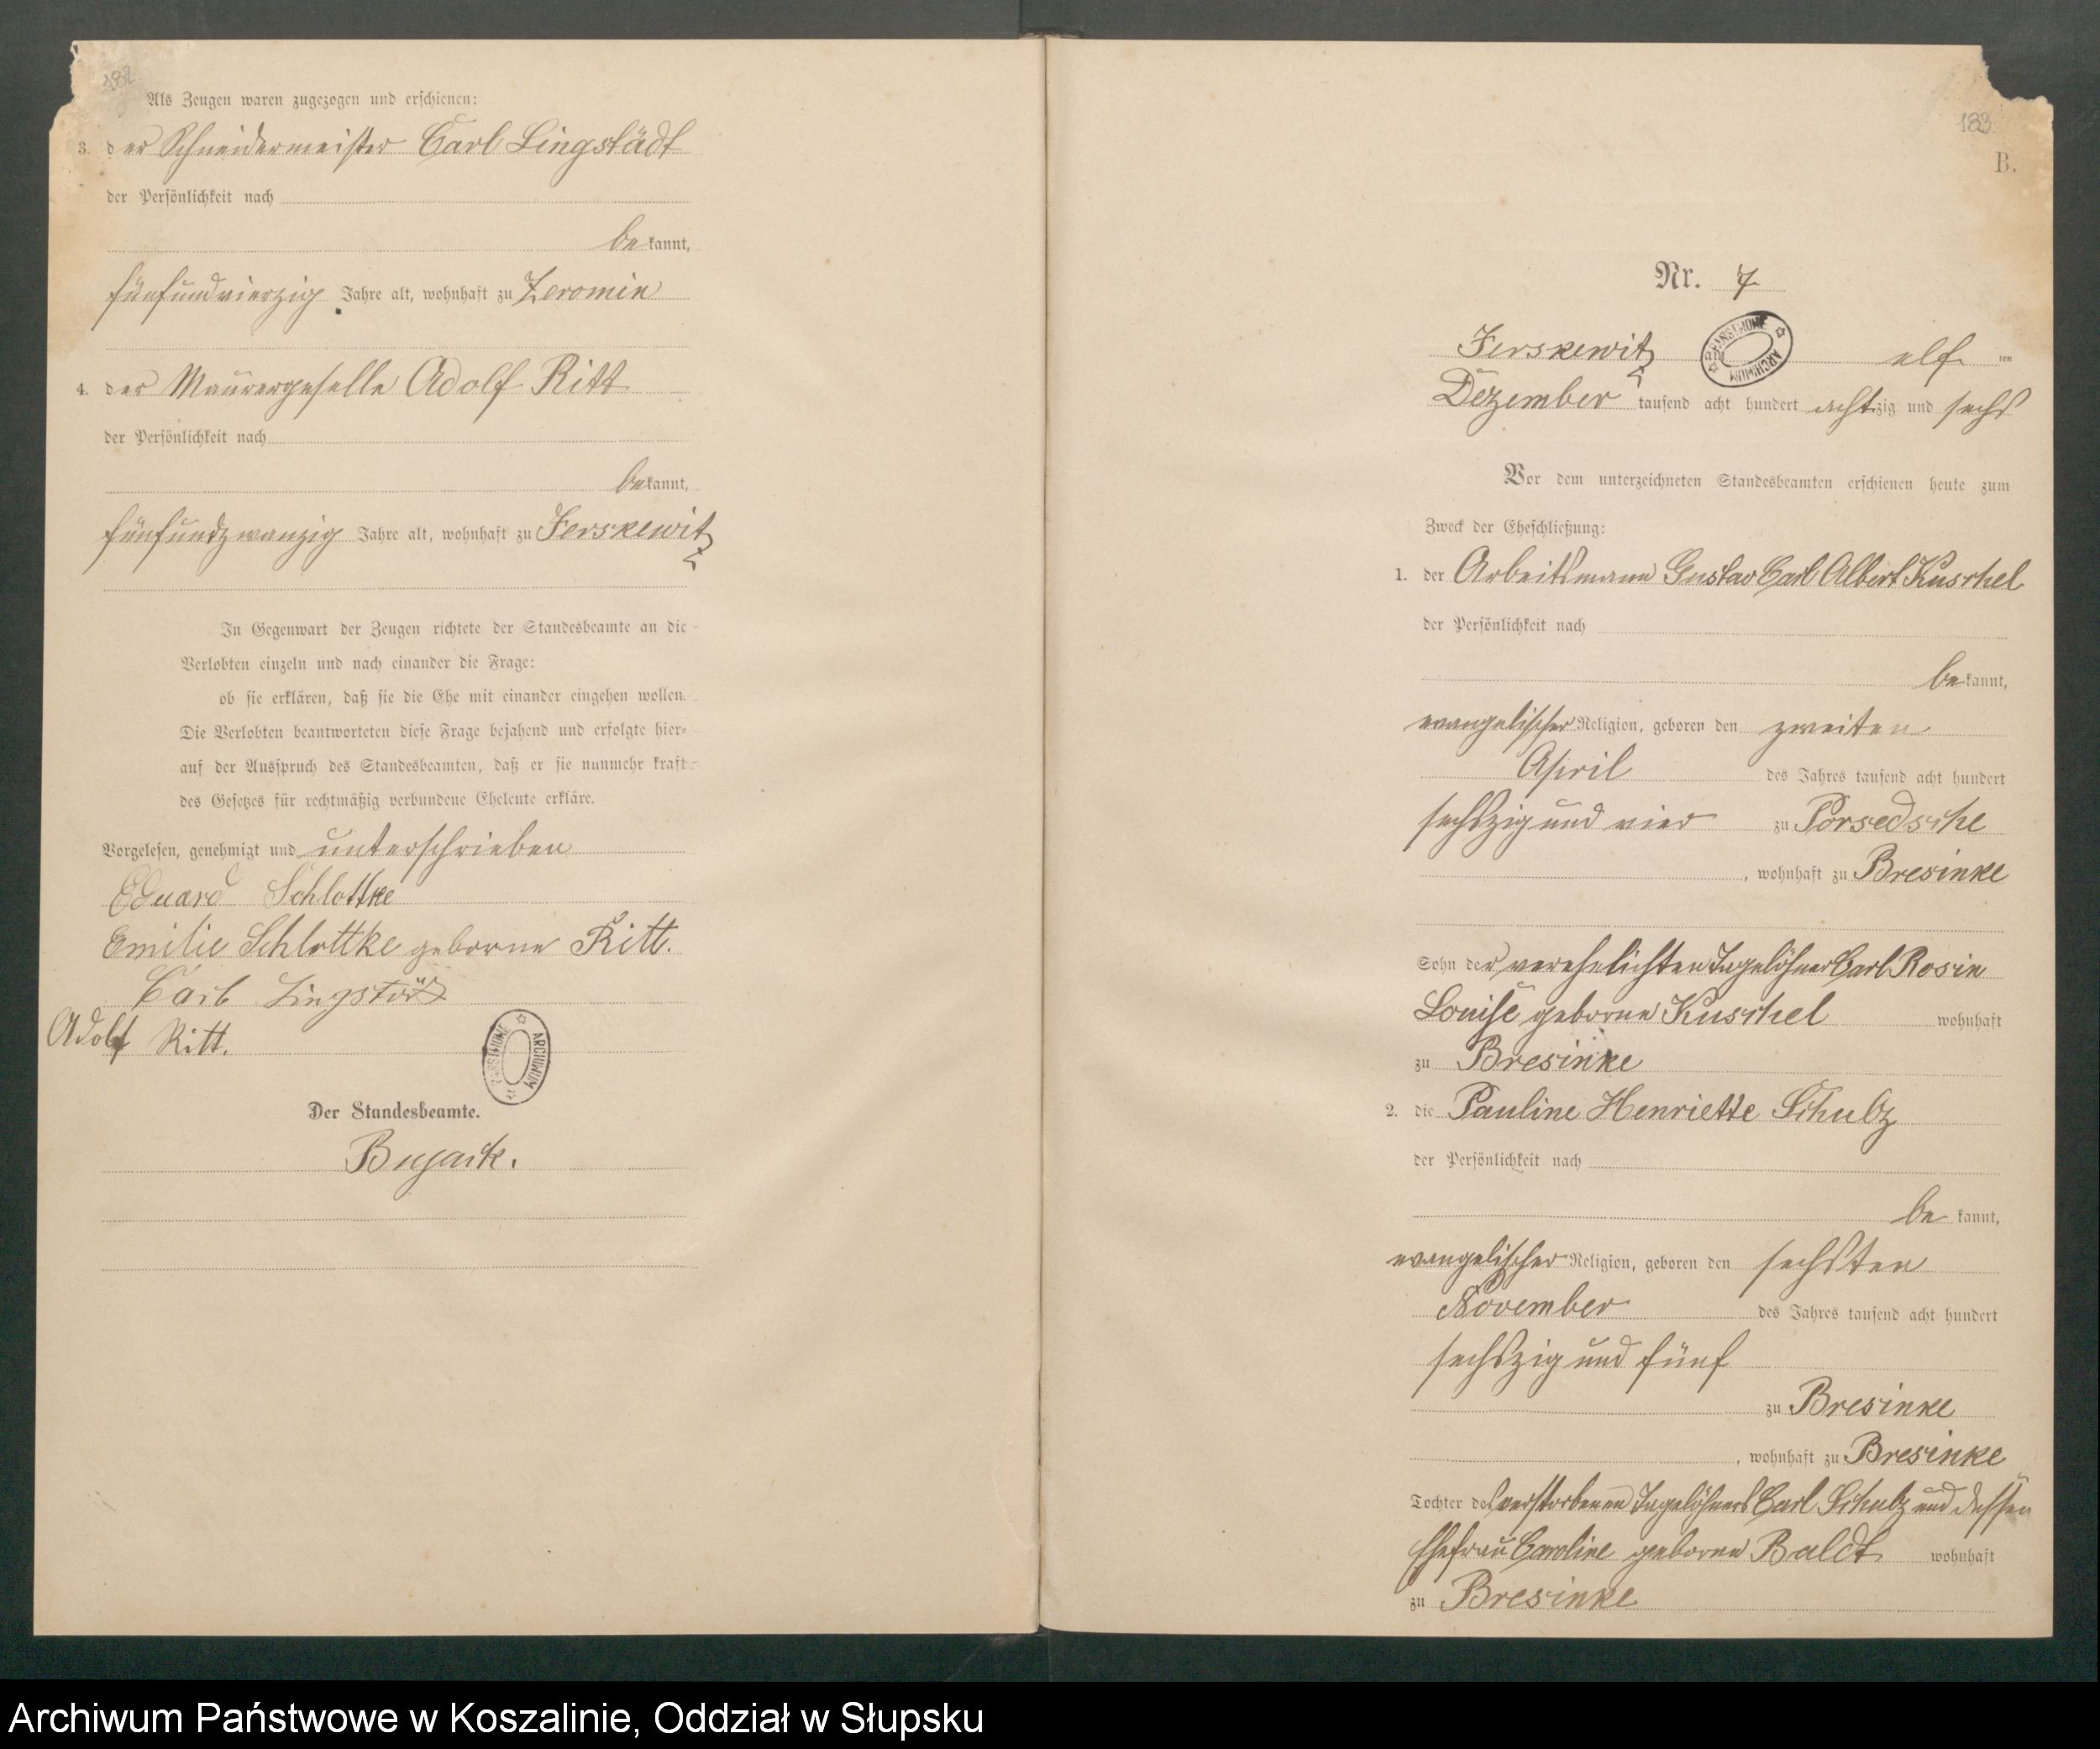 182
Als Zeugen waren zugezogen und erschienen:
3. der Schneidermeister Carl Lingstädt
der Persönlichkeit nach
bekannt,
fünfundvierzig Jahre alt, wohnhaft zu Zeromin
4. der Maurergeselle Adolf Ritt
der Persönlichkeit nach
bekannt,
fünfundzwanzig Jahre alt, wohnhaft zu Jerskewitz
In Gegenwart der Zeugen richtete der Standesbeamte an die
Verlobten einzeln und nach einander die Frage:
ob sie erklären, daß sie die Ehe mit einander eingehen wollen.
Die Verlobten beantworteten diese Frage bejahend und erfolgte hier-
auf der Ausspruch des Standesbeamten, daß er sie nunmehr kraft
des Gesetzes für rechtmäßig verbundene Eheleute erkläre.
Vorgelesen, genehmigt und unterschrieben
Eduard Schlottke
Emilie Schlottke geborne Ritt.
Carl
Adolf Ritt.
ARCHIWUM
Der Standesbeamte.
183
B.
Nr. 7
Jerskewitz elf ten
ARCHIWUM
Dezember tausend acht hundert achtzig und sechs
Vor dem unterzeichneten Standesbeamten erschienen heute zum
Zweck der Eheschließung:
1. der Arbeitsmann Gustav Carl Albert Kuschel
der Persönlichkeit nach
bekannt,
evangelischer Religion, geboren den zweiten
April des Jahres tausend acht hundert
sechszig und vier zu Porsedsche
, wohnhaft zu Bresinke
Sohn der verehelichten Tagelöhner Carl Rosin
Louise geborne Kuschel wohnhaft
zu Bresinke
2. die Pauline Henriette Schulz
der Persönlichkeit nach
bekannt,
evangelischer Religion, geboren den sechsten
November des Jahres tausend acht hundert
sechszig und fünf
zu Bresinke
, wohnhaft zu Bresinke
Tochter des verstorbenen Tagelöhners Carl Schulz und dessen
Ehefrau Caroline geborne Baldt wohnhaft
zu Bresinke
Archiwum Państwowe w Koszalinie, Oddział w Słupsku